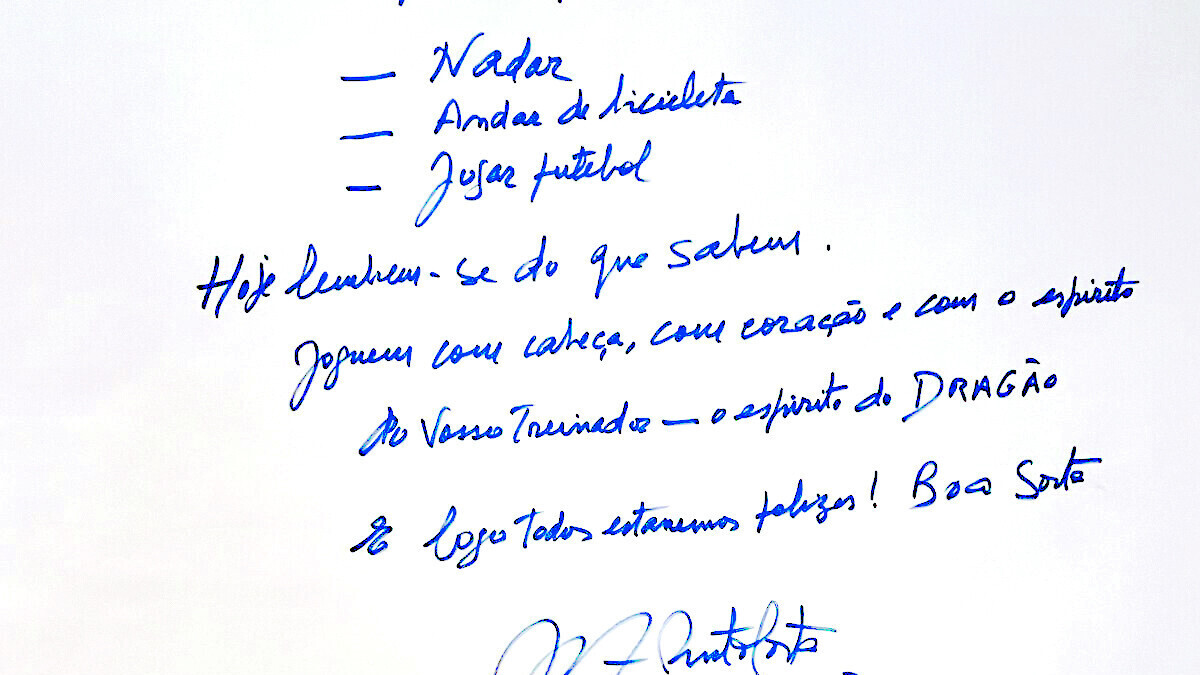 — Nadar
— Andar de bicicleta
— Jogar futebol
Hoje lembrem-se do que sabem.
Joguem com cabeça, com coração e com o espirito
do Vosso Treinador — o espirito do DRAGÃO
E logo todos estaremos felizes! Boa Sorte
Pinto Costa